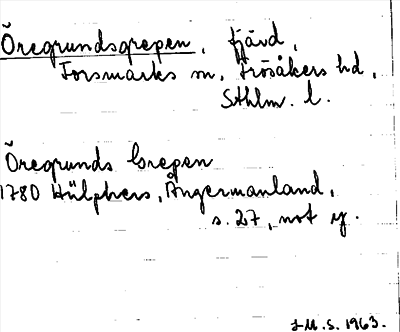 Öregrundsgrepen, fjärd,
Forsmarks sn, Frösåkers hd,
Sthlm. l.
Öregrunds Grepen
1780 Hülphers, Ångermanland,
s. 27, not y.
I.M.S. 1963.